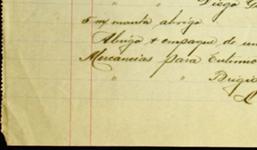 " " Diego G
5 mx manta abrigo
Abrigo + empaque de un
Mercancias para
" " Brigi